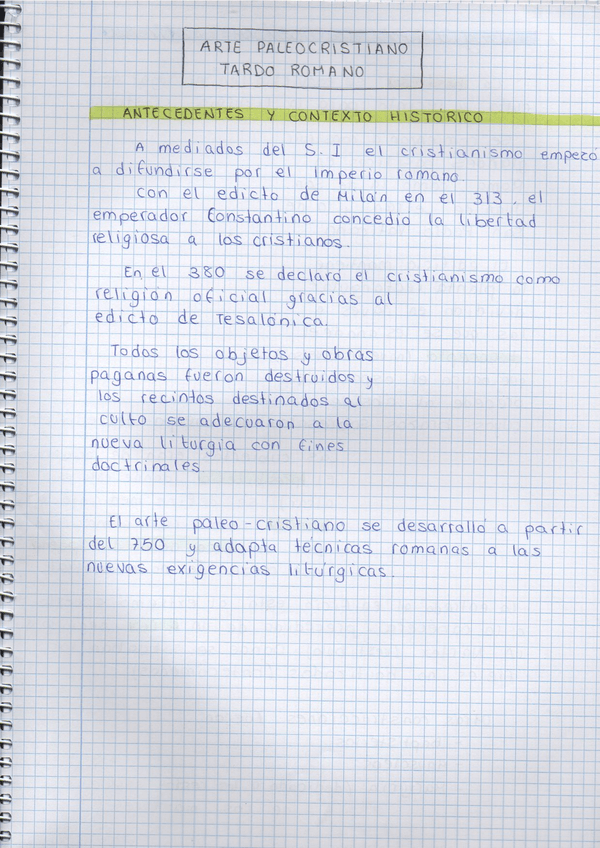 ARTE PALEOCRISTIANO
TARDO ROMANO
ANTECEDENTES Y CONTEXTO HISTÓRICO
A mediados del S.I el cristianismo empezó
a difundirse por el imperio romano.
Con el edicto de Milán en el 313, el
emperador Constantino concedió la libertad
religiosa a los cristianos.
En el 380 se declaró el cristianismo como
religión oficial gracias al
edicto de Tesalónica.
Todos los objetos y obras
paganas fueron destruidos y
los recintos destinados al
culto se adecuaron a la
nueva liturgia con fines
doctrinales
El arte paleo-cristiano se desarrolló a partir
del 750 y adapta técnicas romanas a las
nuevas exigencias litúrgicas.